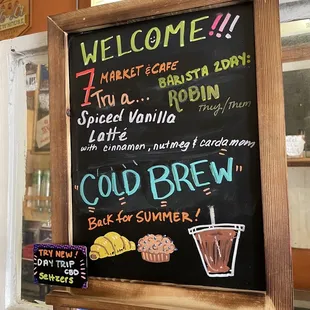 WELCOME!!!
7 MARKET & CAFE
BARISTA 2DAY:
ROBIN
They/Them
Try a...
Spiced Vanilla
Latté
with cinnamon, nutmeg & cardamom
"COLD BREW"
Back for SUMMER!
TRY NEW!
DAY TRIP
CBD
SELTZERS